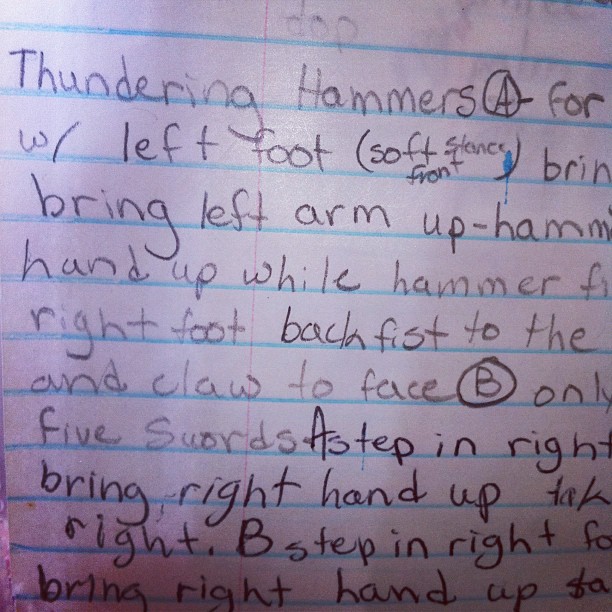 Thundering Hammers Ⓐ- For
w/ left foot (soft front stance) brin
bring left arm up-hamm
hand up while hammer fi
right foot back fist to the
and claw to face Ⓑ only
Five Swords A step in right
bring right hand up tak
right. B step in right fo
bring right hand up to